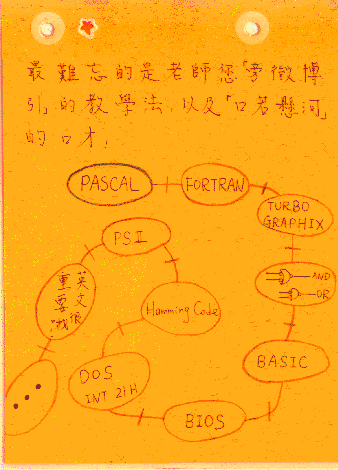 最難忘的是老師您「旁徵博
引」的教學法,以及「口若懸河」
的口才,
PASCAL
FORTRAN
TURBO
GRAPHIX
AND
OR
BASIC
BIOS
DOS
INT 21H
Hamming Code
PSI
英文很
重要哦
...